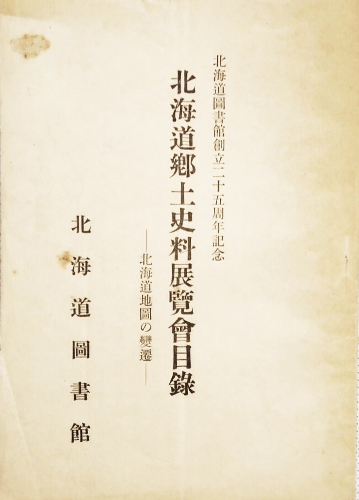 北海道圖書館創立二十五周年記念
北海道鄕土史料展覽會目錄
―北海道地圖の變遷―
北海道圖書館